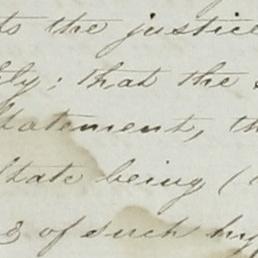 the justice
; that the
Statement, th
State being (
& of such hy